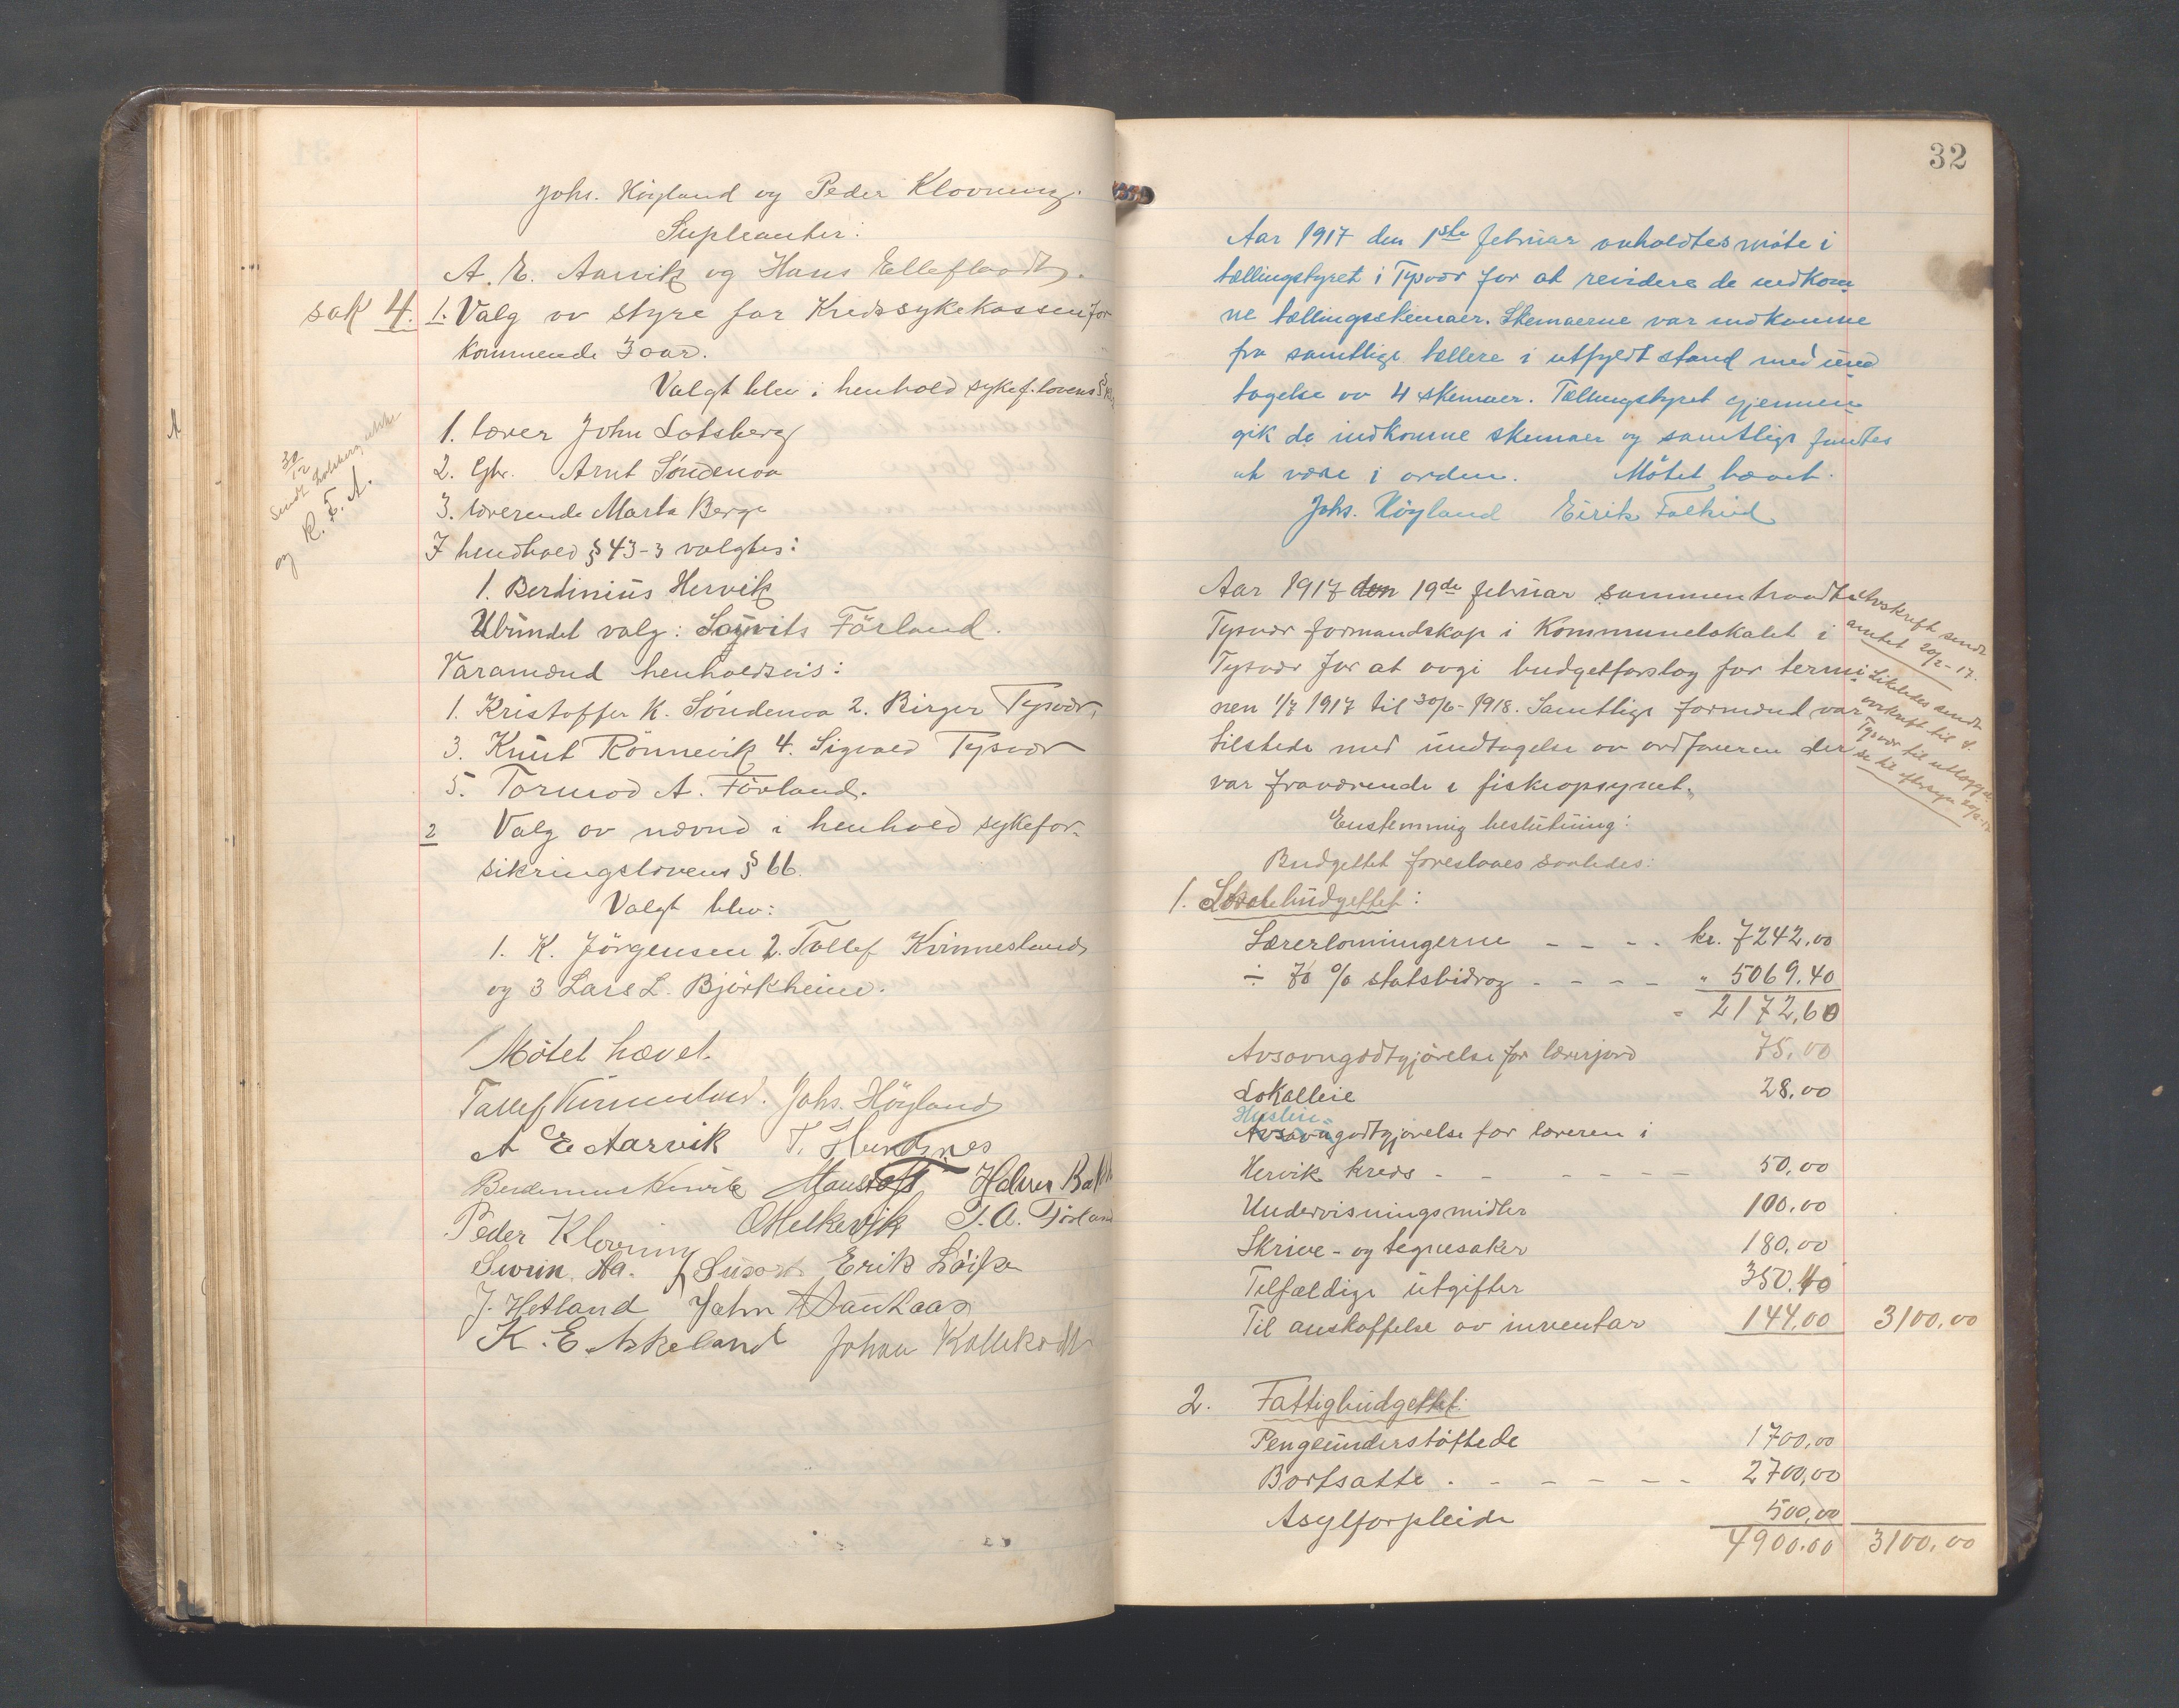 Johs. Höyland og Peder Klovning.
Supleanter:
A. E. Aarvik og Hans Elleflaadt.
sak 4. 1. Valg av styre for Kredssykekassen for
kommende 3 aar.
Valgt blev i henhold sykef. lovens §
1. lærer John Lotsberg
2. Gbr. Arnt Söndenaa
3. lærerende Marta Berge
I hendhold § 43-3 valgtes:
1. Berdinius Hervik
Ubundet valg: Förland.
Varamænd henholdsvis:
1. Kristoffer K. Söndenaa 2. Birger Tysvær,
3. Knut Rönnevik 4. Sigvald Tysvær
5. Tormod A. Förland.
2 Valg av nævnd i henhold sykefor-
sikringslovens § 66.
Valgt blev:
1. K. Jörgensen 2. Tollef Kvinnesland
og 3 Lars L. Björkheim.
Mötet hævet.
Tollef Kvinnesland. Johs. Höyland
A E Aarvik T. Hundsnes
Berdinius Hervik
Peder Klovning O Melkevik T. A. Förland
Erik
J. Hetland John
K. E. Askeland Johan Kallekodt
30/12
Sendt Lotsberg
og R. F. A.
32
Aar 1917 den 1ste februar avholdtes möte i
tællingstyret i Tysvær for at revidere de indkom-
ne tællingsskemaer. Skemaerne var indkomne
fra samtlige tællere i utfyldt stand med und-
tagelse av 4 skemaer. Tællingstyret gjennem-
gik de indkomne skemaer og samtlige fantes
at være i orden. Mötet hævet.
Johs. Höyland Eirik Falkeid
Aar 1917 den 19de februar sammentraadte
Tysvær formandskap i Kommunelokalet i
Tysvær for at avgi budgetforslag for termi-
nen 1/7 1917 til 30/6-1918. Samtlige formænd var
tilstede med undtagelse av ordföreren der
var fraværende i fiskeopsynet.
Utskrift sendt
amtet 20/2-17.
Likeledes sendt
avskrift til
Tysvær til utlægge
se til eftersyn 20/2-17
Enstemmig beslutning:
Budgettet foreslaaes saaledes:
1. Skolebudgettet:
Lærerlönningerne - - - - kr. 7242,00
÷ 70 % statsbidrag - - - - " 5069.40
= 2172,60
Avsavngodtgjörelse for lærerjord 75,00
Lokalleie 28,00
Husleie-
Avsavngodtgjörelse for læreren i
Hervik kreds - - - - - - 50,00
Undervisningsmidler 100,00
Skrive- og tegnesaker 180,00
Tilfældige utgifter 350.40
Til anskaffelse av inventar 144,00 3100,00
2. Fattigbudgettet:
Pengeunderstöttede 1700,00
Bortsatte - - - - - - 2700,00
Asylforpleide 500,00
4900.00 3100,00